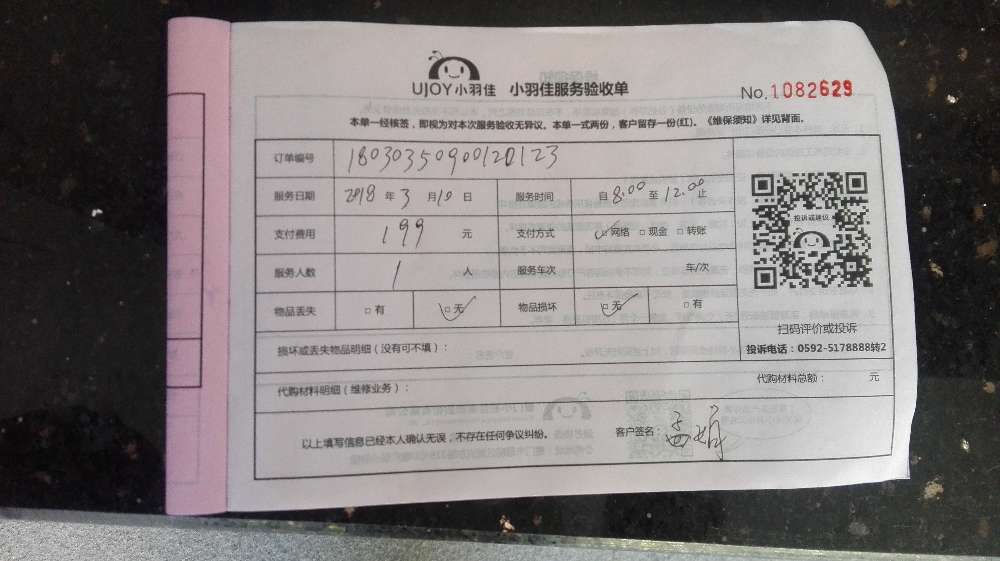 UJOY小羽佳 小羽佳服务验收单
No.1082629
本单一经核签，即视为对本次服务验收无异议。本单一式两份，客户留存一份(红)。《维保须知》详见背面。
订单编号 18030350900120123
服务日期 2018 年 3 月 10 日 服务时间 自 8:00 至 12:00 止
支付费用 199 元 支付方式 ☑网络 □现金 □转账
服务人数 1 人 服务车次 车/次
物品丢失 □有 ☑无 物品损坏 ☑无 □有
投诉或建议
扫码评价或投诉
投诉电话：0592-5178888转2
损坏或丢失物品明细（没有可不填）：
代购材料明细（维修业务）： 代购材料总额： 元
以上填写信息已经本人确认无误，不存在任何争议纠纷。 客户签名：